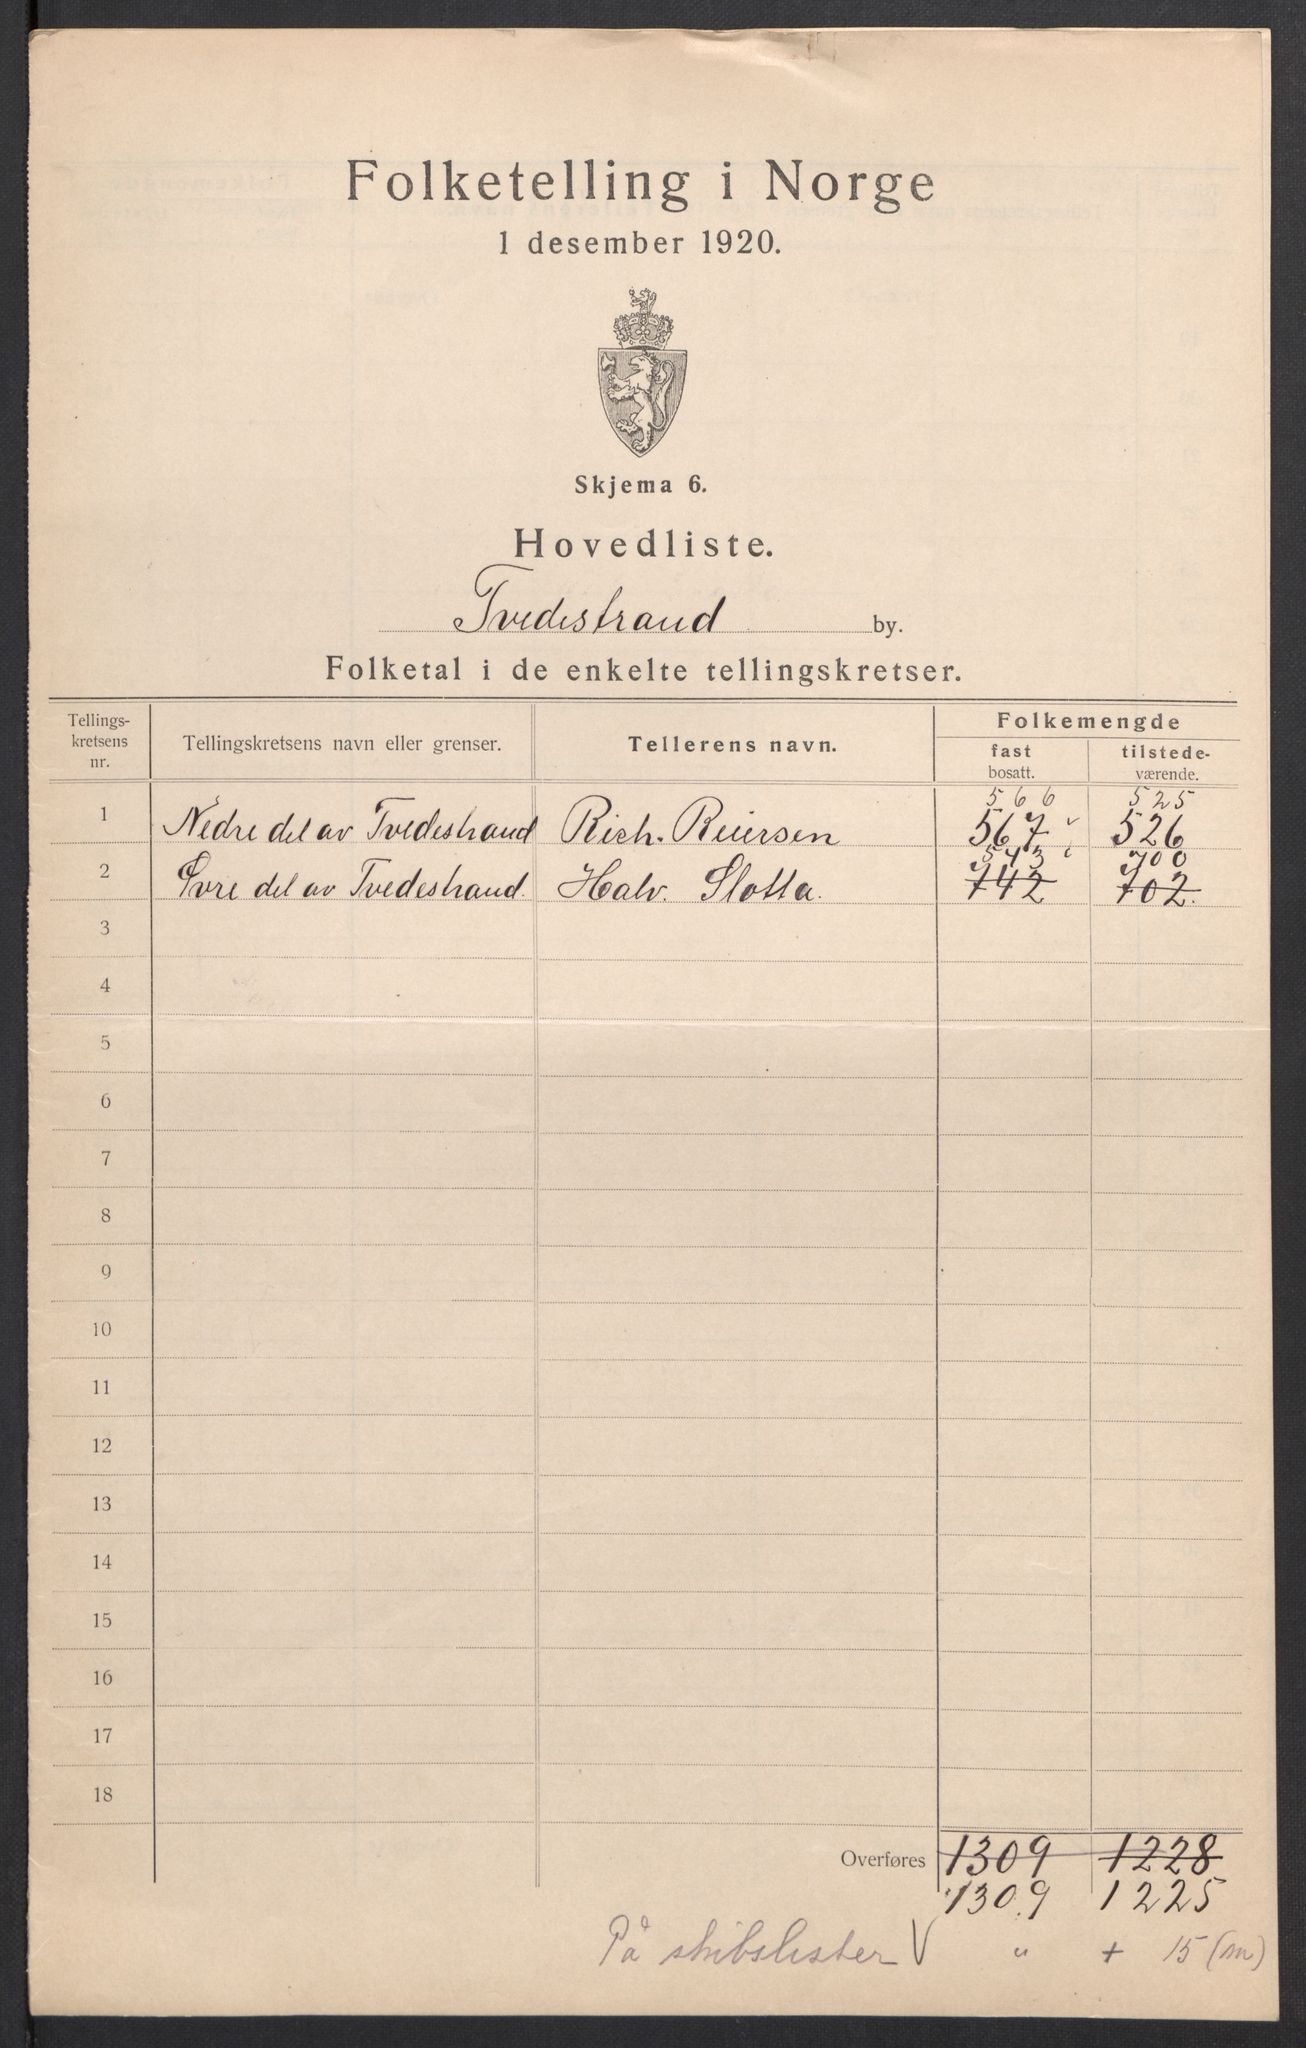 Folketelling i Norge
1 desember 1920.
Skjema 6.
Hovedliste.
Tvedestrand by.
Folketal i de enkelte tellingskretser.
Tellings-kretsens nr. Tellingskretsens navn eller grenser. Tellerens navn. Folkemengde
fast bosatt. tilstede-værende.
566 525
1 Nedre del av Tvedestrand Rich. Reiersen 567 526
743 700
2 Øvre del av Tvedestrand. Halv. Slotta. 742 702.
3
4
5
6
7
8
9
10
11
12
13
14
15
16
17
18
Overføres 1309 1228
1309 1225
På skibslister V " + 15 (m)